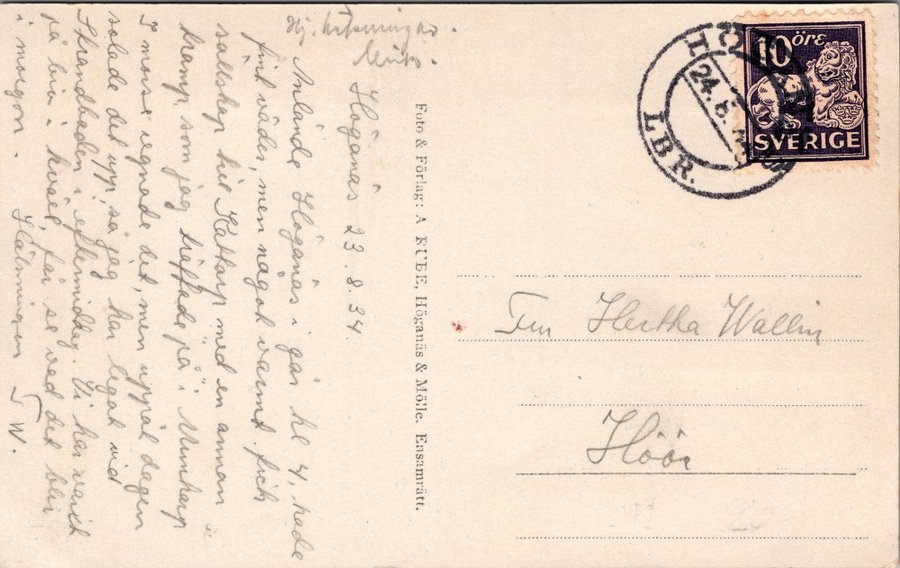 Höganäs 23.8.34.
Anlände Höganäs i går kl 4, hade
fint väder, men något varmt. fick
sällskap till Kattarp med en annan
tramp, som jag träffade på i Munkarp
I morse regnade det, men uppåt dagen
solade det upp, så jag har legat vid
Strandbaden i eftermiddag. Vi har varit
på bio i kväll, får se vad det blir
i morgon. Hälningen T W.
Foto & Förlag: A KUEE, Höganäs & Mölle. Ensamrätt.
10 ÖRE
SVERIGE
24. 8.
LBR.
Fru Hertha Wallin
Höör